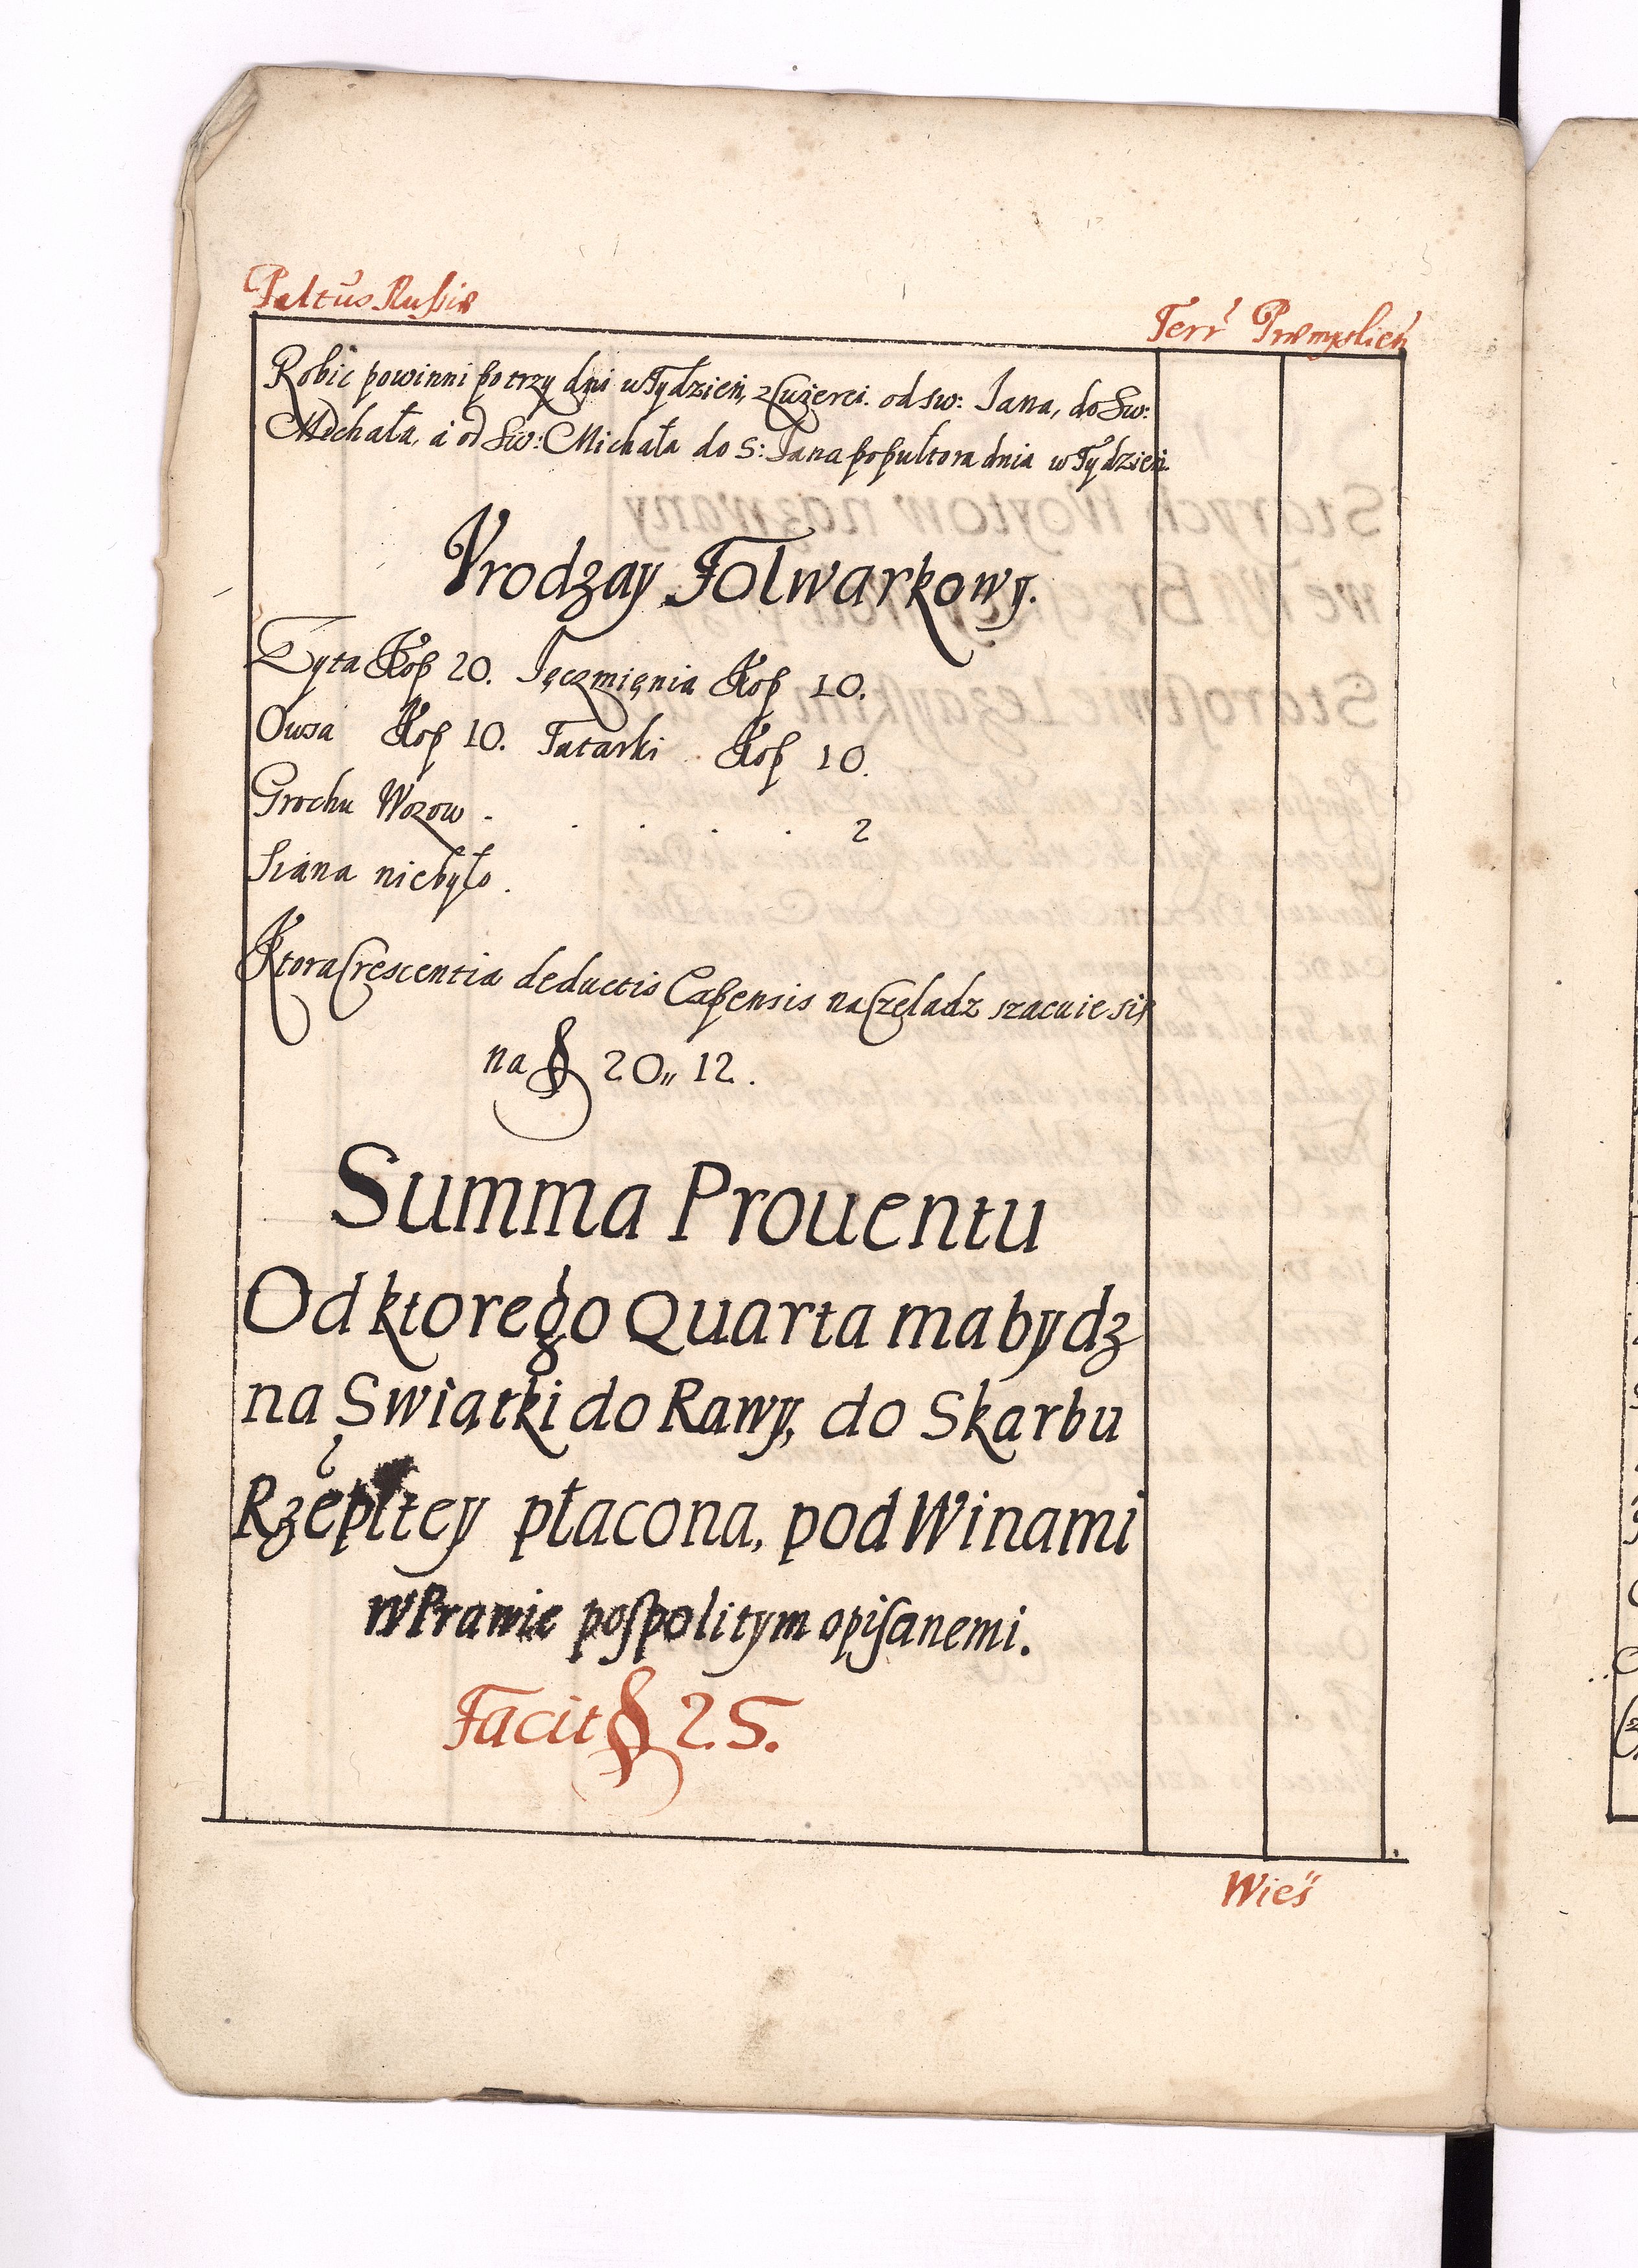 Palt&#363;s Russiæ
Terr Præmyslien
Robic powinni po trzy dni w Tydzień, z Cwierci. od sw: Jana, do Sw:
Michała, á od Sw: Michała do S: Jana popułtora dnia w Tydzień.
Vrodzay Folwarkowy.
Zyta Kop 20. Jęczmięnia Kop 10.
Owsa Kop 10. Tatarki Kop 10.
Grochu Wozow - . . . . 2
Siana niebyło.
Ktora Crescentia deductis Expensis na Czeladz szacuie się
na § 20,, 12.
Summa Prouentu
Od ktorego Quarta ma bydz
na Swiątki do Rawy, do Skarbu
Rzepltey płacona, pod Winami
w Prawie pospolitym opisanemi.
Facit § 25.
Wieś